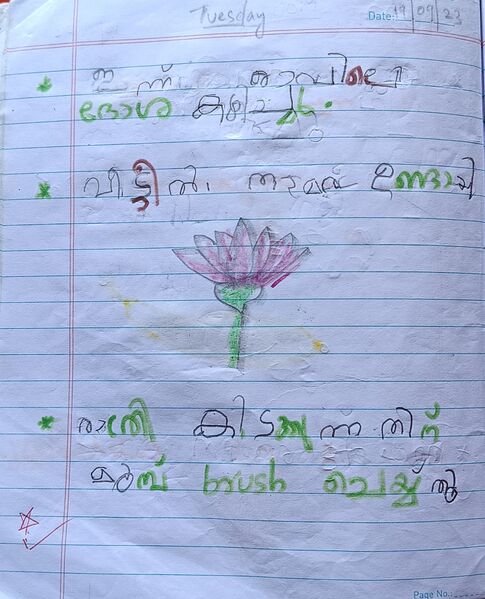 Tuesday
Date: 19/09/23
* ഇന്ന് രാവിലെ
ദോശ കഴിച്ചു.
* വീട്ടിൽ താമര ഉണ്ടായി
* രാത്രി കിടക്കുന്നതിന്
മുമ്പ് brush ചെയ്തു
Page No.: